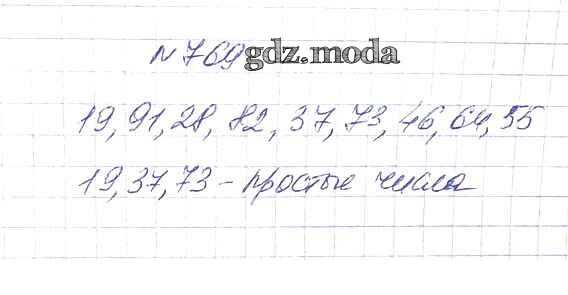 №769 gdz.moda
19, 91, 28, 82, 37, 73, 46, 64, 55
19, 37, 73 - простые числа